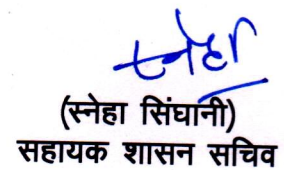 स्नेहा
(स्नेहा सिंघानी)
सहायक शासन सचिव